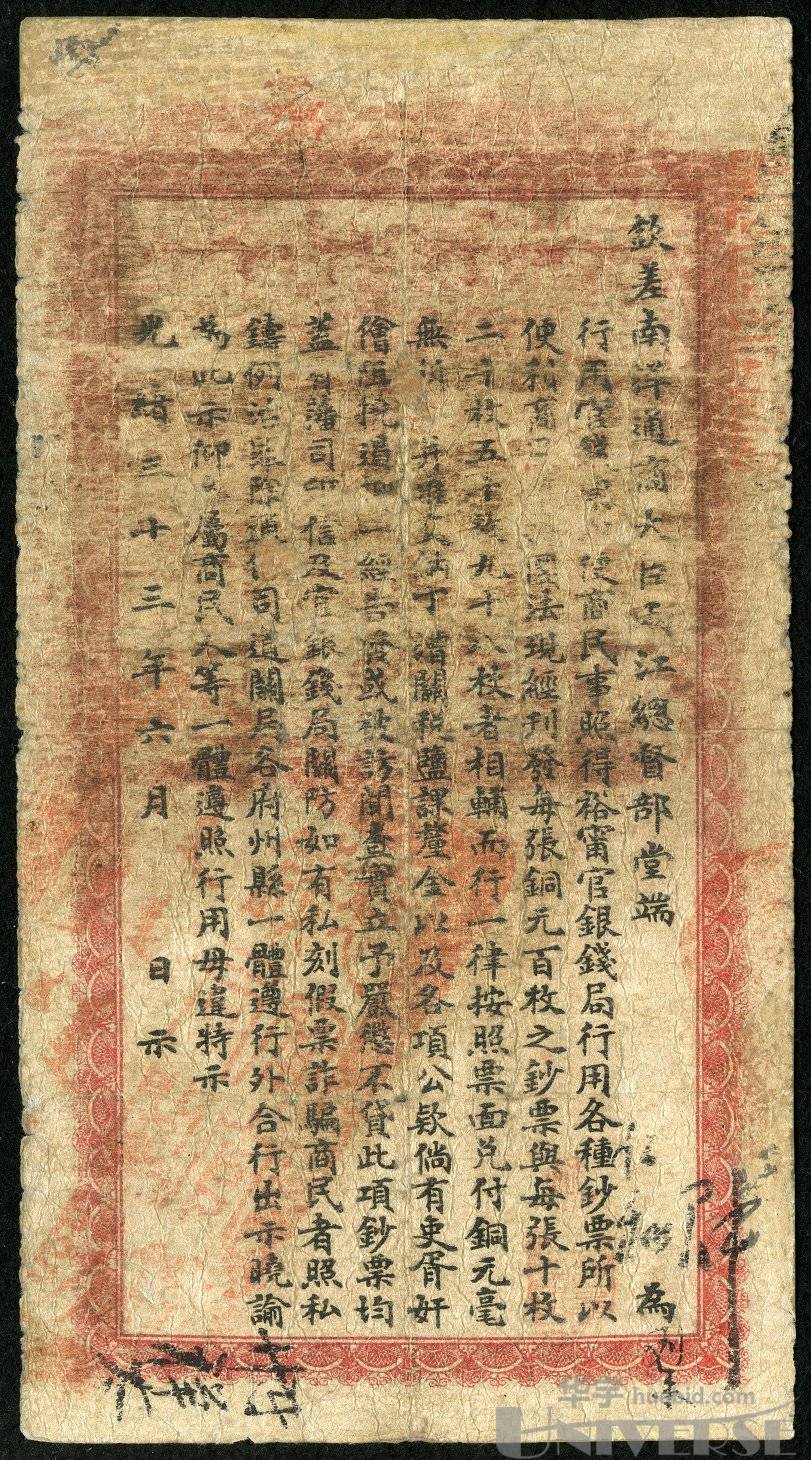 欽差南洋通商大臣兩江總督部堂端 為
行用官 便商民事照得裕甯官銀錢局行用各種鈔票所以
便利商 圜法現經刊發每張銅元百枚之鈔票與每張十枚
二十枚五十枚九十八枚者相輔而行一律按照票面兑付銅元毫
無 并准 丁漕關稅鹽課釐金以及各項公款倘有吏胥奸
一經告發或被訪聞查實立予嚴懲不貸此項鈔票均
蓋有藩司印信及官銀錢局關防如有私刻假票詐騙商民者照私
鑄例治 除 司道關局各府州縣一體遵行外合行出示曉諭
為此示仰 屬商民人等一體遵照行用毋違特示
光緒三十三年六月 日示
华宇 huabid.com
UNIVERSE